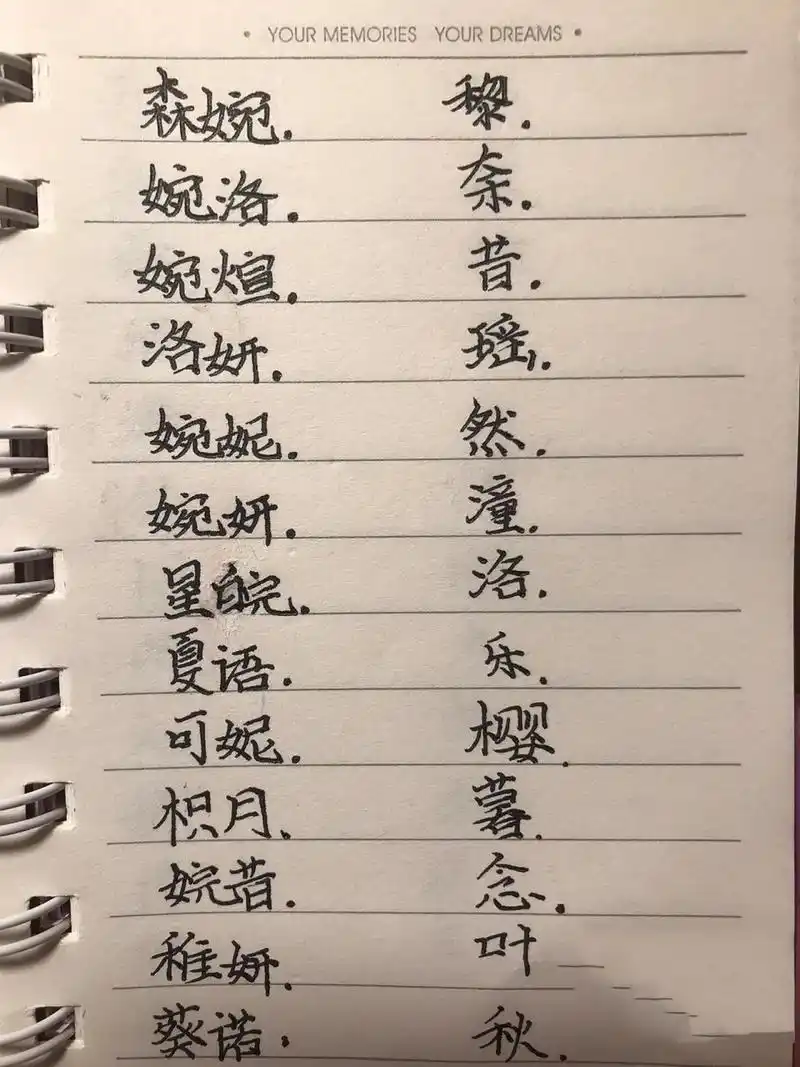 • YOUR MEMORIES YOUR DREAMS •
森婉. 黎.
婉洛. 奈.
婉煊. 昔.
洛妍. 瑶.
婉妮. 然.
婉妍. 潼.
星皖. 洛.
夏语. 乐.
可妮. 樱.
枳月. 暮.
婉昔. 念.
稚妍. 叶
葵诺. 秋.